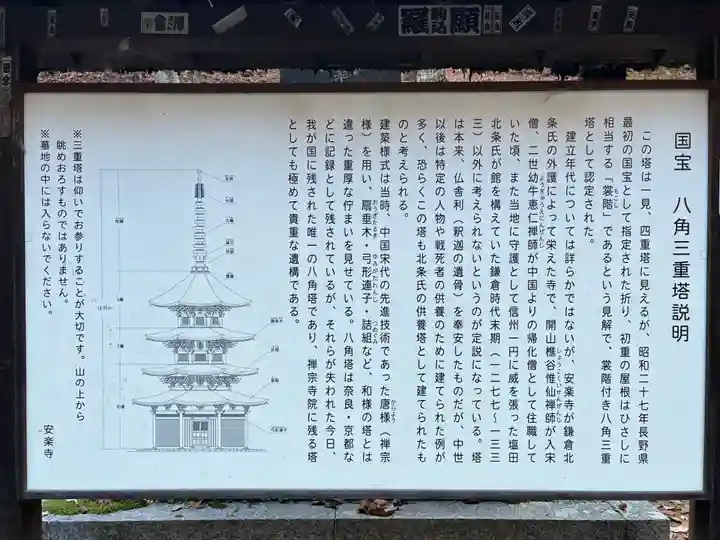 国宝 八角三重塔説明
この塔は一見、四重塔に見えるが、昭和二十七年長野県
最初の国宝として指定された折り、初重の屋根はひさしに
相当する「裳階」であるという見解で、裳階付き八角三重
塔として認定された。
建立年代については詳らかではないが、安楽寺が鎌倉北
条氏の外護によって栄えた寺で、開山樵谷惟仙禅師が入宋
僧、二世幼牛恵仁禅師が中国よりの帰化僧として住職して
いた頃、また当地に守護として信州一円に威を張った塩田
北条氏が館を構えていた鎌倉時代末期（一二七七～一三三
三）以外に考えられないというのが定説になっている。塔
は本来、仏舎利（釈迦の遺骨）を奉安したものだが、中世
以後は特定の人物や戦死者の供養のために建てられた例が
多く、恐らくこの塔も北条氏の供養塔として建てられたも
のと考えられる。
建築様式は当時、中国宋代の先進技術であった唐様（禅宗
様）を用い、扇垂木・弓形連子・詰組など、和様の塔とは
違った重厚な佇まいを見せている。八角塔は奈良・京都な
どに記録として残されているが、それらが失われた今日、
我が国に残された唯一の八角塔であり、禅宗寺院に残る塔
としても極めて貴重な遺構である。
※三重塔は仰いでお参りすることが大切です。山の上から
眺めおろすものではありません。
※墓地の中には入らないでください。
安楽寺